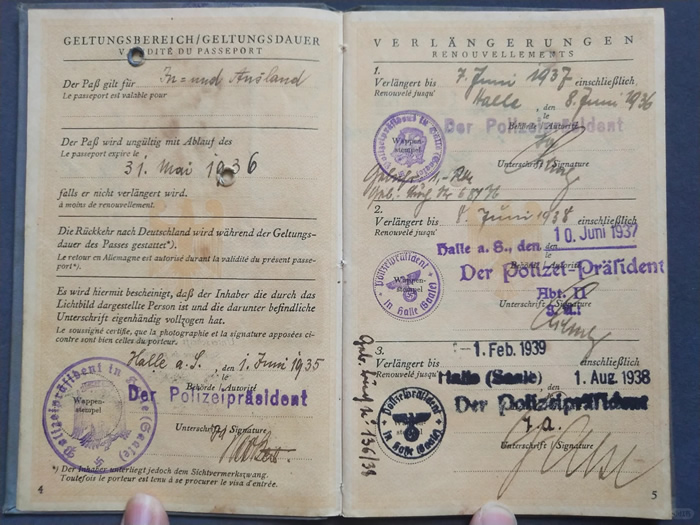 GELTUNGSBEREICH/GELTUNGSDAUER
VALIDITÉ DU PASSEPORT
Der Paß gilt für In= und Ausland
Le passeport est valable pour
Der Paß wird ungültig mit Ablauf des
Le passeport expire le
31. Mai 1936
falls er nicht verlängert wird.
à moins de renouvellement.
Die Rückkehr nach Deutschland wird während der Geltungs-
dauer des Passes gestattet*).
Le retour en Allemagne est autorisé durant la validité du présent passe-
port*).
Es wird hiermit bescheinigt, daß der Inhaber die durch das
Lichtbild dargestellte Person ist und die darunter befindliche
Unterschrift eigenhändig vollzogen hat.
Le soussigné certifie, que la photographie et la signature apposées ci-
contre sont bien celles du porteur.
Halle a. S., den 1. Juni 1935
Behörde / Autorité
Wappen-
stempel
Der Polizeipräsident
Polizeipräsident in Halle (Saale)
Unterschrift / Signature
*) Der Inhaber unterliegt jedoch dem Sichtvermerkszwang.
Toutefois le porteur est tenu à se procurer le visa d'entrée.
4
VERLÄNGERUNGEN
RENOUVELLEMENTS
1.
Verlängert bis 7. Juni 1937 einschließlich
Renouvelé jusqu'
Halle, den 8. Juni 1936
le
Der Polizeipräsident
Behörde / Autorité
Wappen-
stempel
Unterschrift / Signature
2.
Verlängert bis Juni 1938 einschließlich
Renouvelé jusqu'
Halle a. S., den 10. Juni 1937
Der Polizei-Präsident
Behörde / Autorité
Abt. II
Wappen-
stempel
Polizeipräsident in Halle (Saale)
Unterschrift / Signature
3.
Verlängert bis -1. Feb. 1939 einschließlich
Renouvelé jusqu'
Halle (Saale), den 1. Aug. 1938
Der Polizeipräsident
Polizeipräsident in Halle (Saale)
Unterschrift / Signature
5